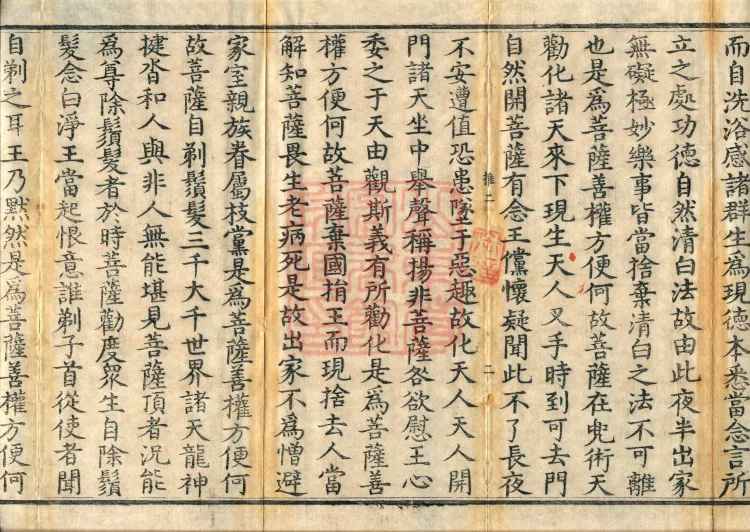 而自洗浴感諸群生為現德本悉當念言所
立之處功德自然清白法故由此夜半出家
無礙極妙樂事皆當捨棄清白之法不可離
也是為菩薩善權方便何故菩薩在兜術天
勸化諸天來下現生天人叉手時到可去門
自然開菩薩有念王儻懷疑聞此不了長夜
推二
二
不安遭值恐患墜于惡趣故化天人天人開
門諸天坐中舉聲稱揚非菩薩咎欲慰王心
委之于天由觀斯義有所勸化是為菩薩善
權方便何故菩薩棄國捐王而現捨去人當
解知菩薩畏生老病死是故出家不為憎避
家室親族眷屬枝黨是為菩薩善權方便何
故菩薩自剃鬚髮三千大千世界諸天龍神
揵沓和人與非人無能堪見菩薩頂者況能
為尊除鬚髮者於時菩薩勸度眾生自除鬚
髮念白淨王當起恨意誰剃子首從使者聞
自剃之耳王乃默然是為菩薩善權方便何